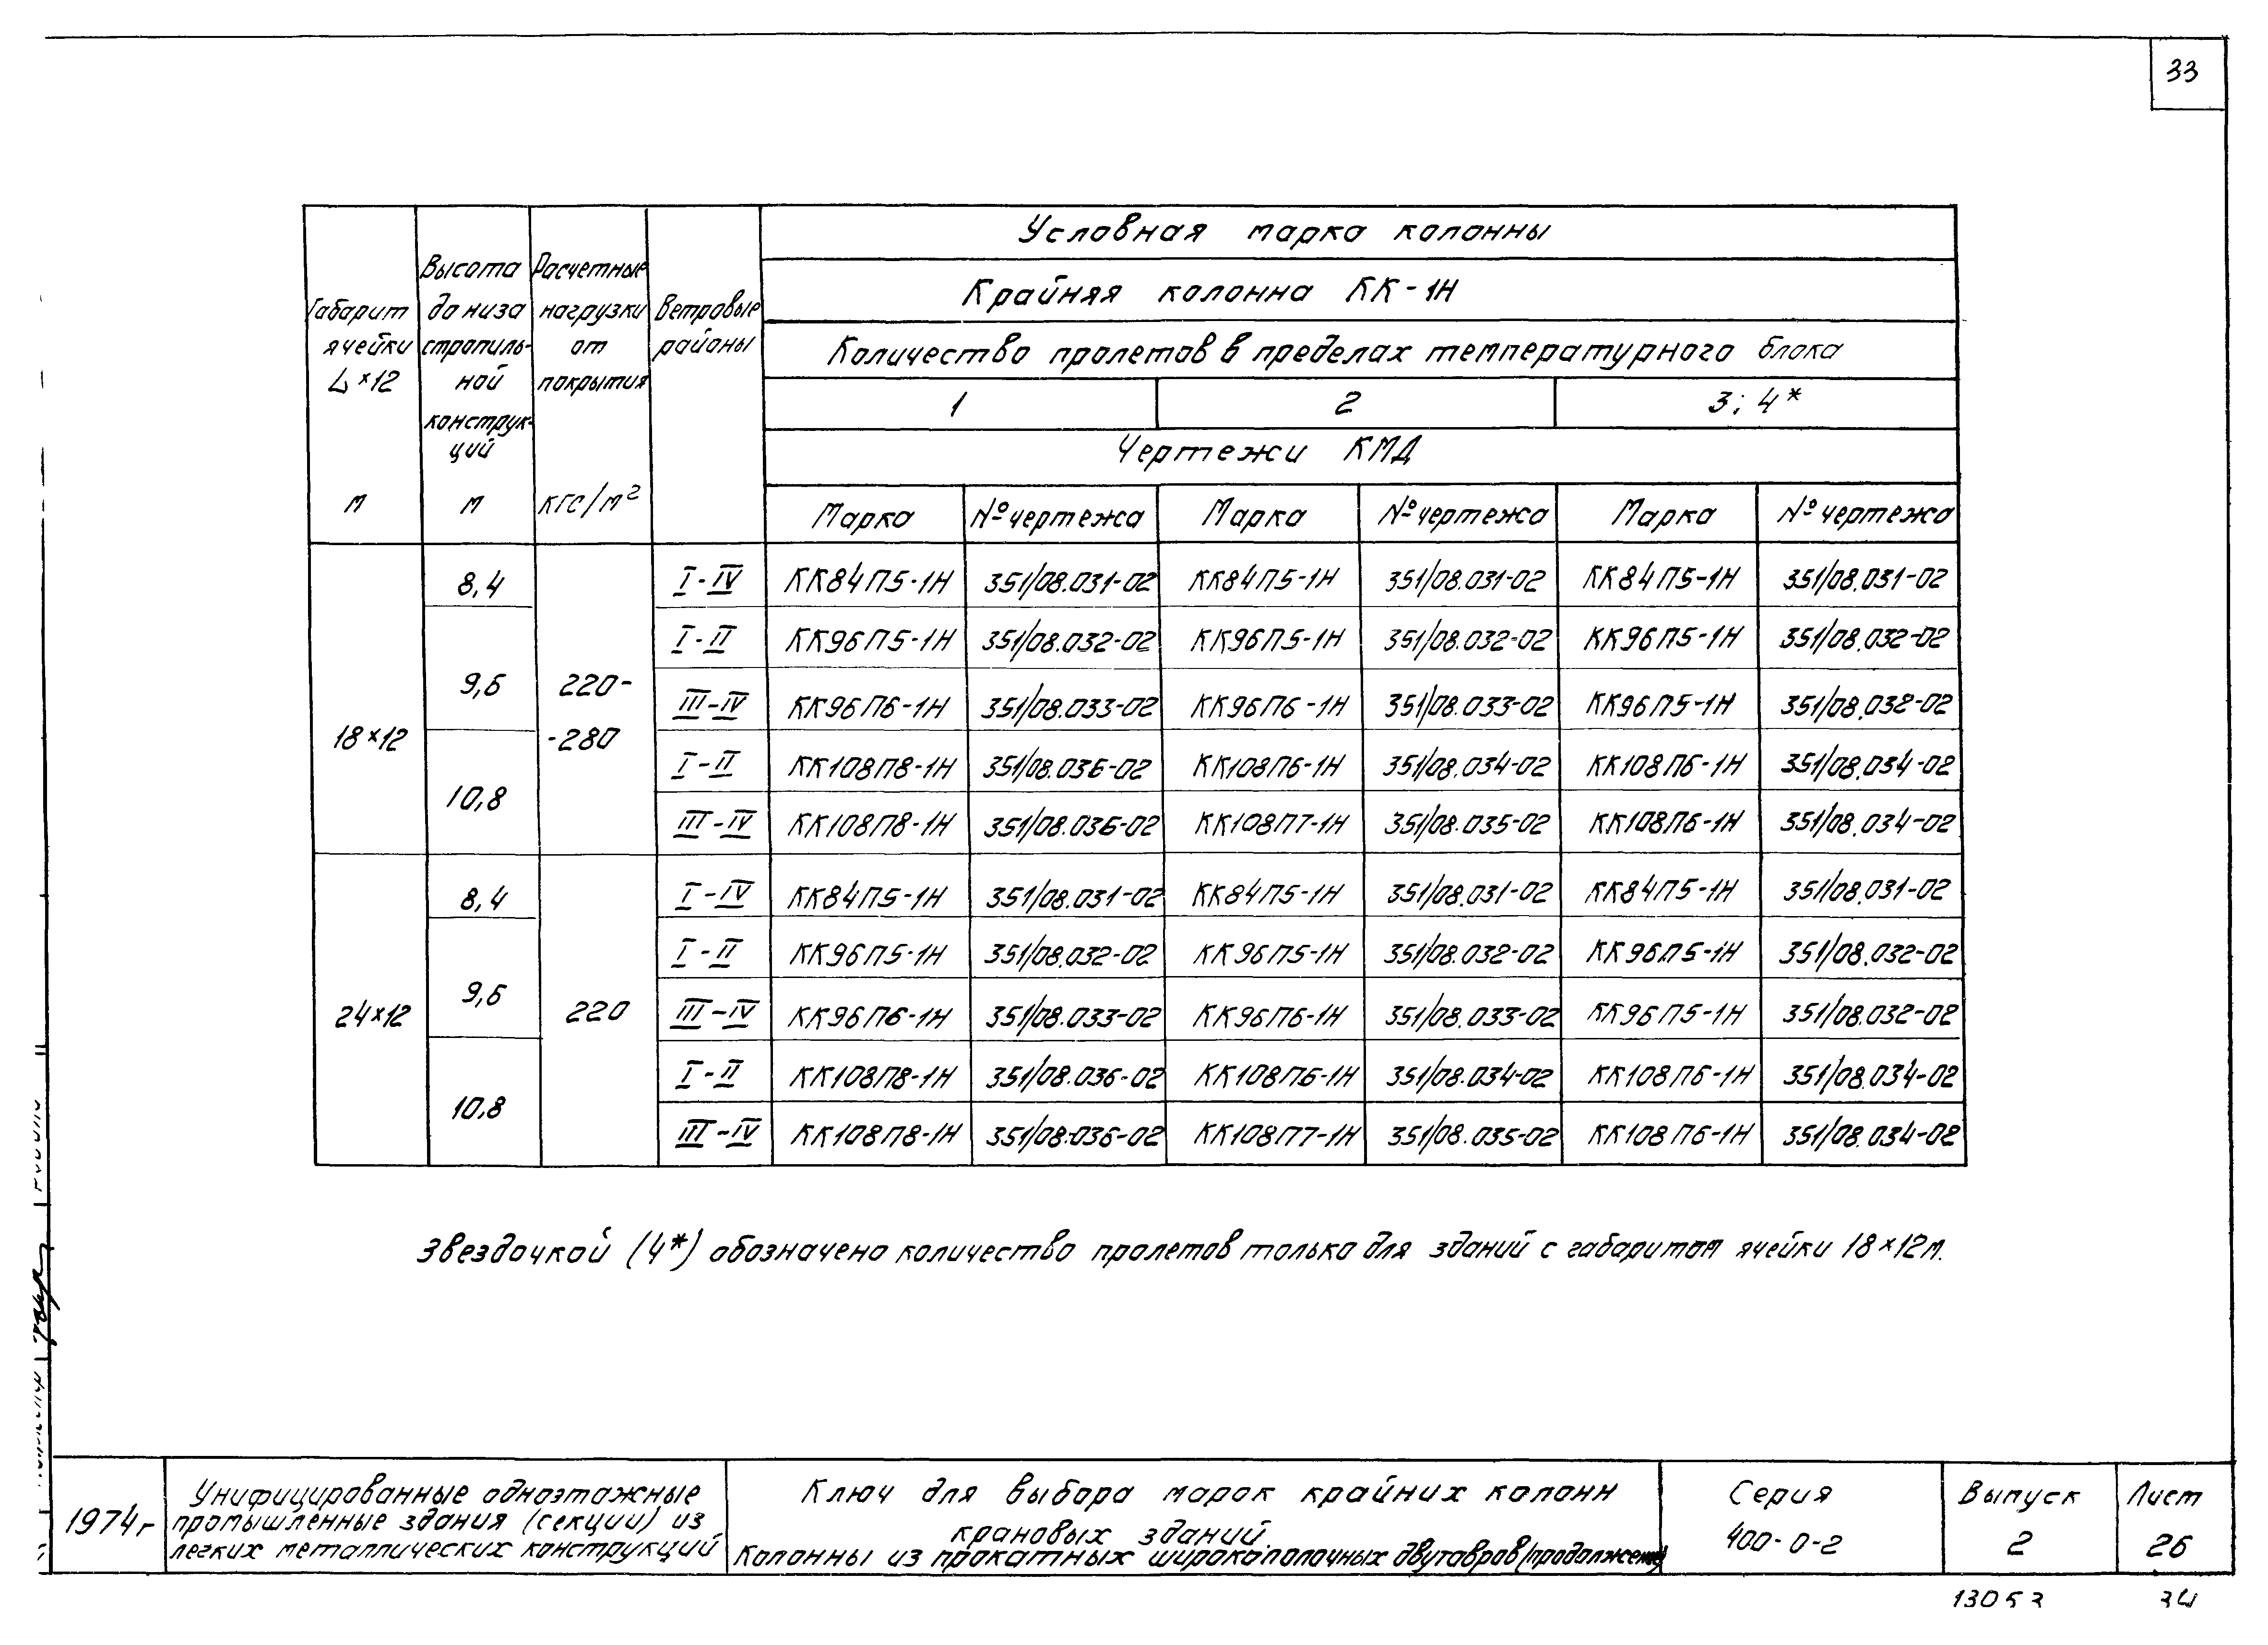 33
Условная марка колонны
Крайняя колонна КК-1Н
Количество пролетов в пределах температурного блока
1 2 3; 4*
Чертежи КМД
Габарит ячейки L×12 м
Высота до низа стропиль-ной конструк-ций м
Расчетные нагрузки от покрытия кгс/м²
Ветровые районы
Марка №чертежа Марка №чертежа Марка №чертежа
18×12 220--280
8,4 I-IV КК84П5-1Н 351/08.031-02 КК84П5-1Н 351/08.031-02 КК84П5-1Н 351/08.031-02
9,6 I-II КК96П5-1Н 351/08.032-02 КК96П5-1Н 351/08.032-02 КК96П5-1Н 351/08.032-02
III-IV КК96П6-1Н 351/08.033-02 КК96П6-1Н 351/08.033-02 КК96П5-1Н 351/08.032-02
10,8 I-II КК108П8-1Н 351/08.036-02 КК108П6-1Н 351/08.034-02 КК108П6-1Н 351/08.034-02
III-IV КК108П8-1Н 351/08.036-02 КК108П7-1Н 351/08.035-02 КК108П6-1Н 351/08.034-02
24×12 220
8,4 I-IV КК84П5-1Н 351/08.031-02 КК84П5-1Н 351/08.031-02 КК84П5-1Н 351/08.031-02
9,6 I-II КК96П5-1Н 351/08.032-02 КК96П5-1Н 351/08.032-02 КК96П5-1Н 351/08.032-02
III-IV КК96П6-1Н 351/08.033-02 КК96П6-1Н 351/08.033-02 КК96П5-1Н 351/08.032-02
10,8 I-II КК108П8-1Н 351/08.036-02 КК108П6-1Н 351/08.034-02 КК108П6-1Н 351/08.034-02
III-IV КК108П8-1Н 351/08.036-02 КК108П7-1Н 351/08.035-02 КК108П6-1Н 351/08.034-02
Звездочкой (4*) обозначено количество пролетов только для зданий с габаритом ячейки 18×12м.
1974г
Унифицированные одноэтажные
промышленные здания (секции) из
легких металлических конструкций
Ключ для выбора марок крайних колонн
крановых зданий.
Колонны из прокатных широкополочных двутавров (продолжение)
Серия
400-0-2
Выпуск
2
Лист
26
13053 34